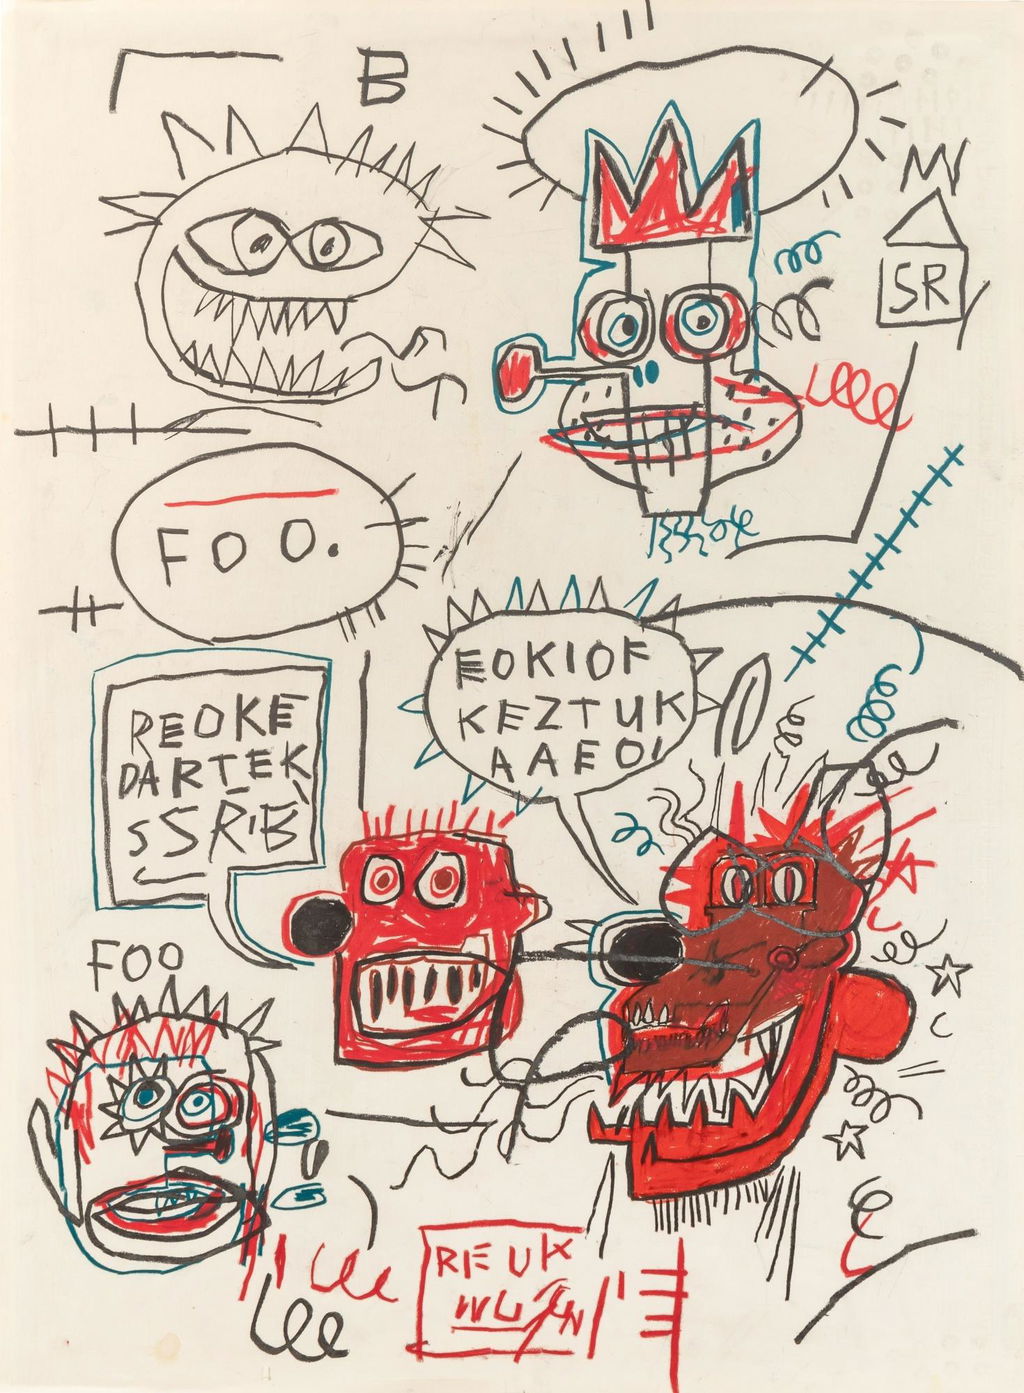 B
SR
FOO.
EOKIOF
KEZTUK
AAEO
REOKE
DARTEK
SSRIB
FOO
REUK